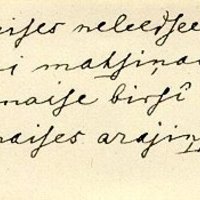 aises neleedsee
i maksiņai
maise birst
maises arajiņ